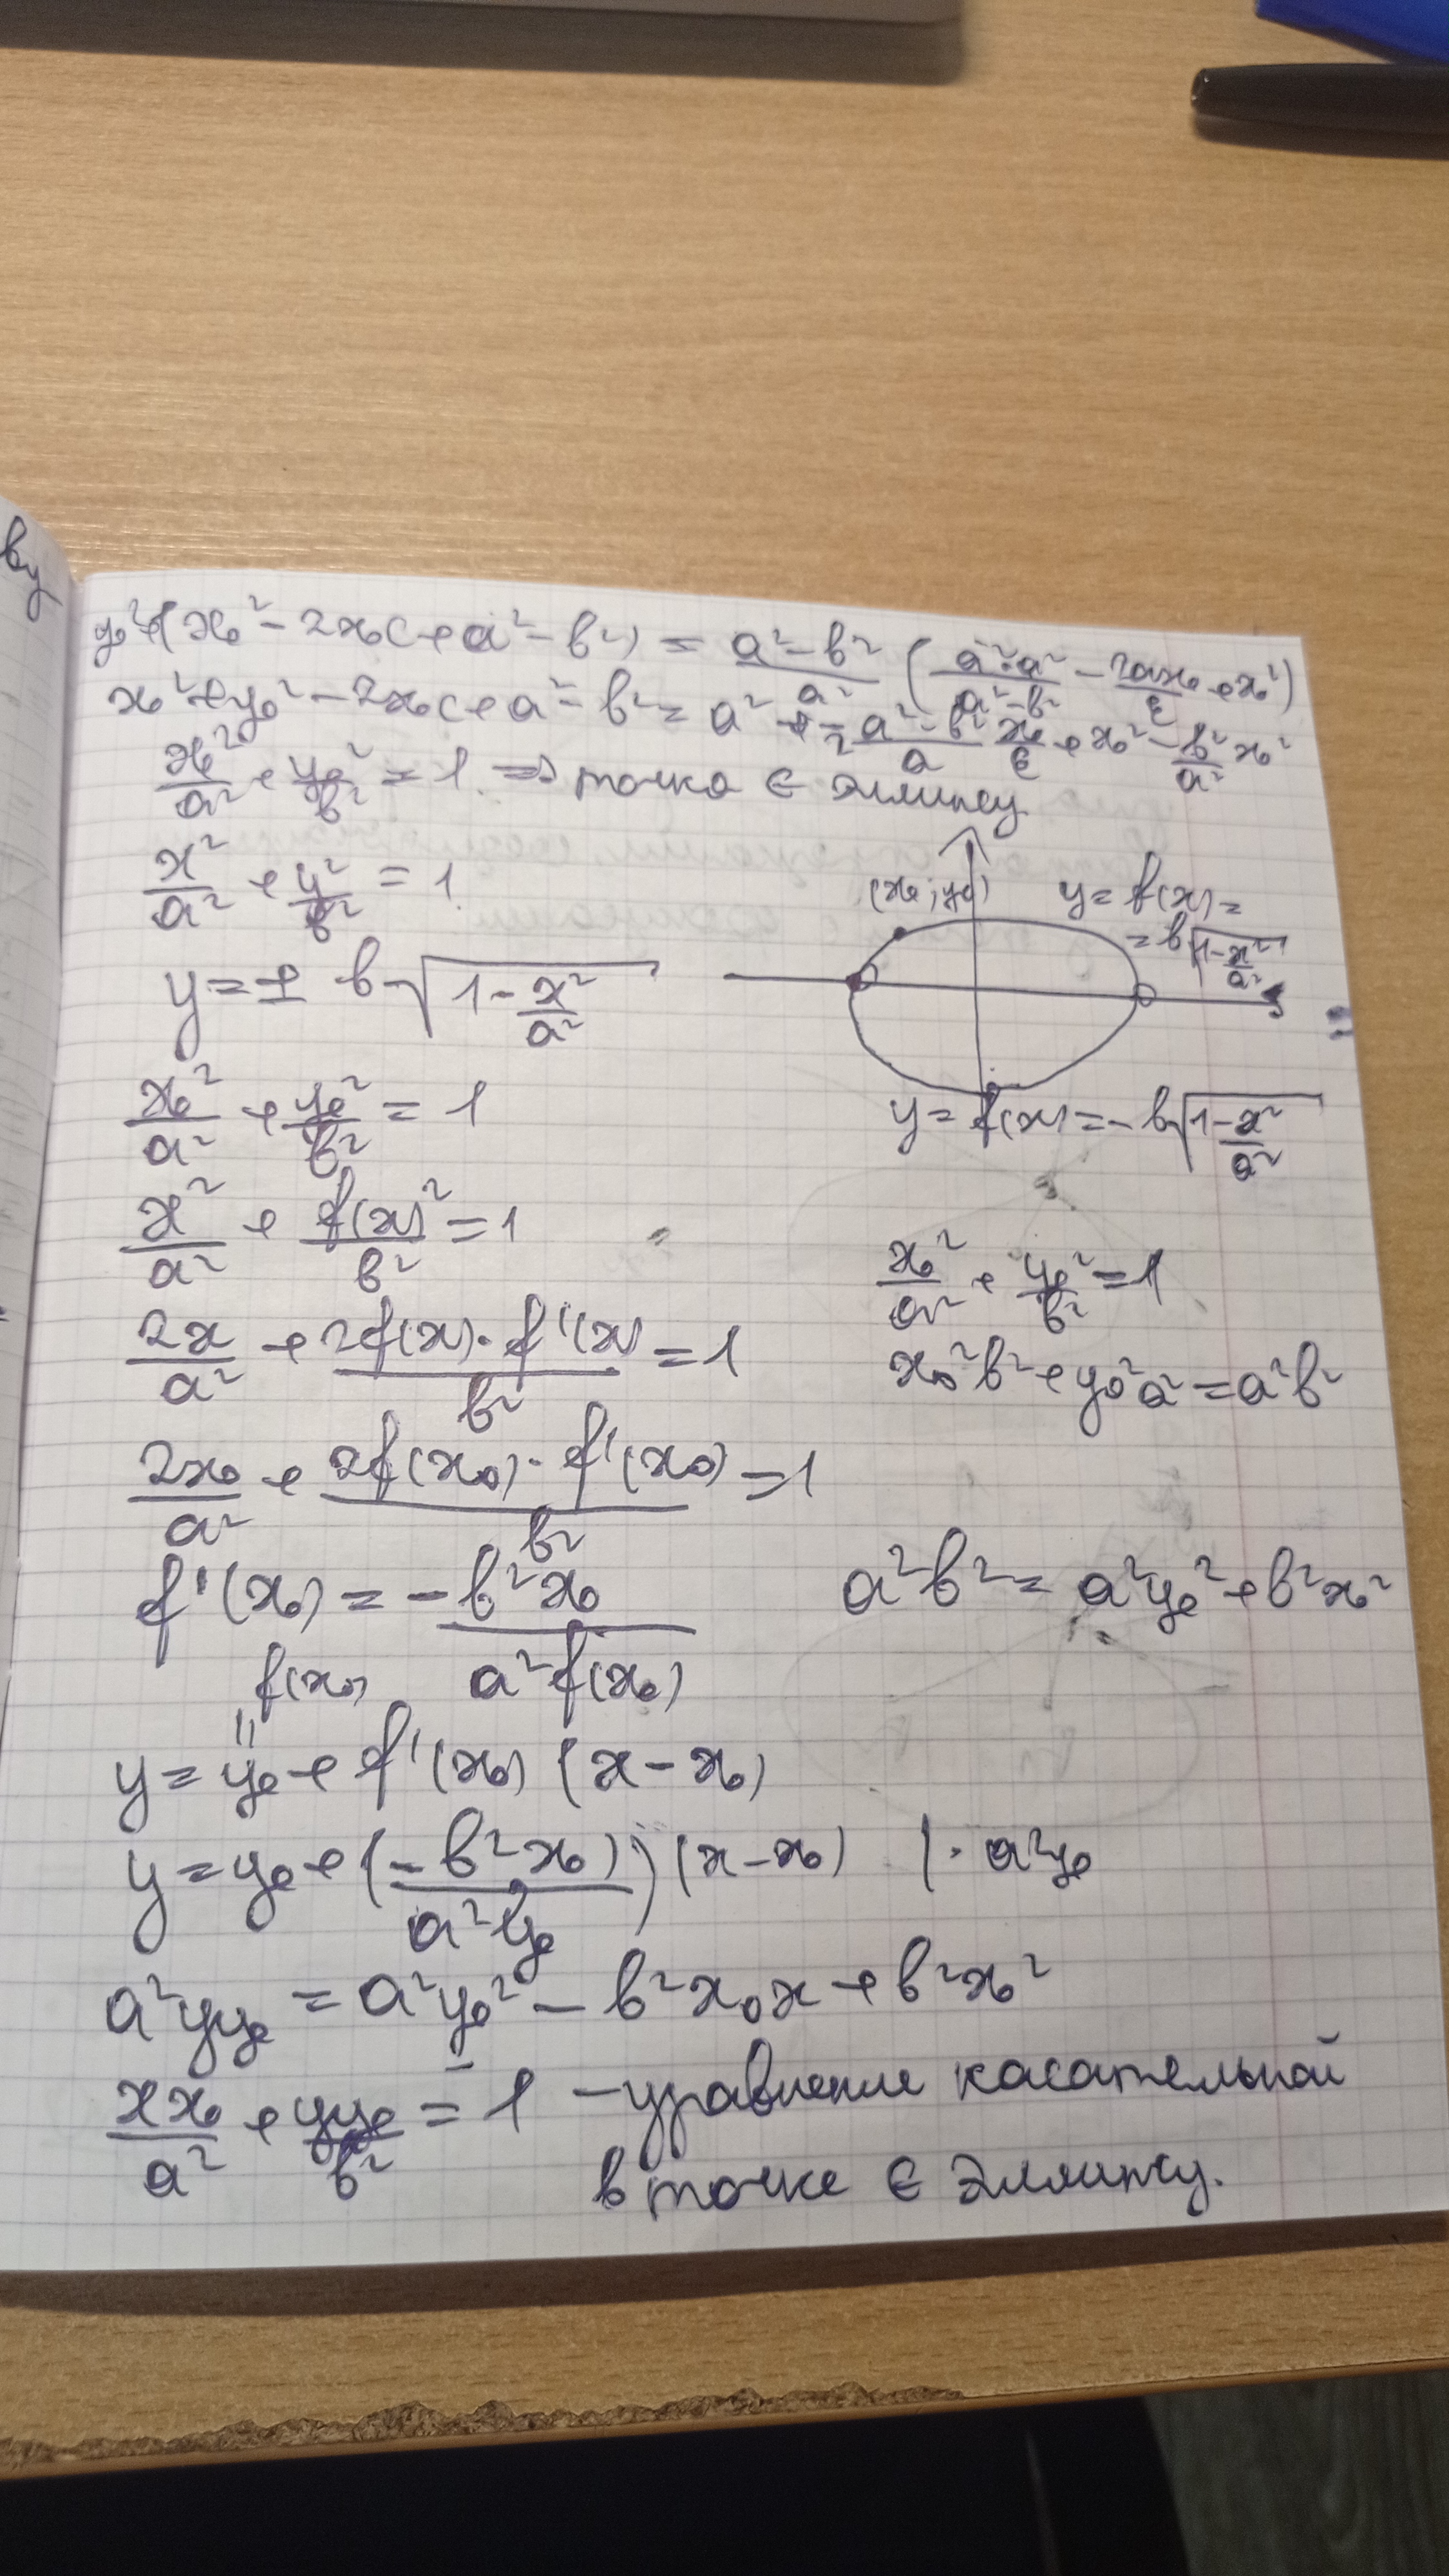 ву
y₀² + (x₀² - 2x₀c + a² - b²) = (a² - b²)/a² (a²·a²/(a² - b²) - 2ax₀/ε + x₀²)
x₀² + y₀² - 2x₀c + a² - b² = a² - 2 (a² - b²)/a x₀/ε + x₀² - b²/a² x₀²
x₀²/a² + y₀²/b² = 1 ⇒ точка ∈ эллипсу
x²/a² + y²/b² = 1
(x₀; y₀)
y = f(x) =
= b√(1 - x²/a²)
y = ± b√(1 - x²/a²)
y = f(x) = - b√(1 - x²/a²)
x₀²/a² + y₀²/b² = 1
x²/a² + f(x)²/b² = 1
x₀²/a² + y₀²/b² = 1
2x/a² + 2f(x)·f'(x)/b² = 1
x₀²b² + y₀²a² = a²b²
2x₀/a² + 2f(x₀)·f'(x₀)/b² = 1
f'(x₀) = - b²x₀/(a²f(x₀))
a²b² = a²y₀² + b²x₀²
f(x₀)
y = y₀ + f'(x₀) (x - x₀)
y = y₀ + (- b²x₀/(a²y₀)) (x - x₀) |· a²y₀
a²yy₀ = a²y₀² - b²x₀x + b²x₀²
xx₀/a² + yy₀/b² = 1 - уравнение касательной
в точке ∈ эллипсу.